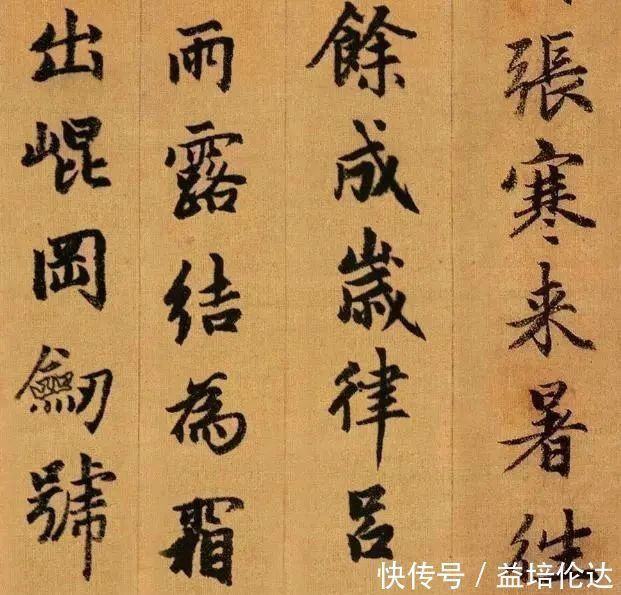 張寒来暑往
餘成歲律呂
雨露結為霜
出崐岡劔號
快传号 / 益培伦达